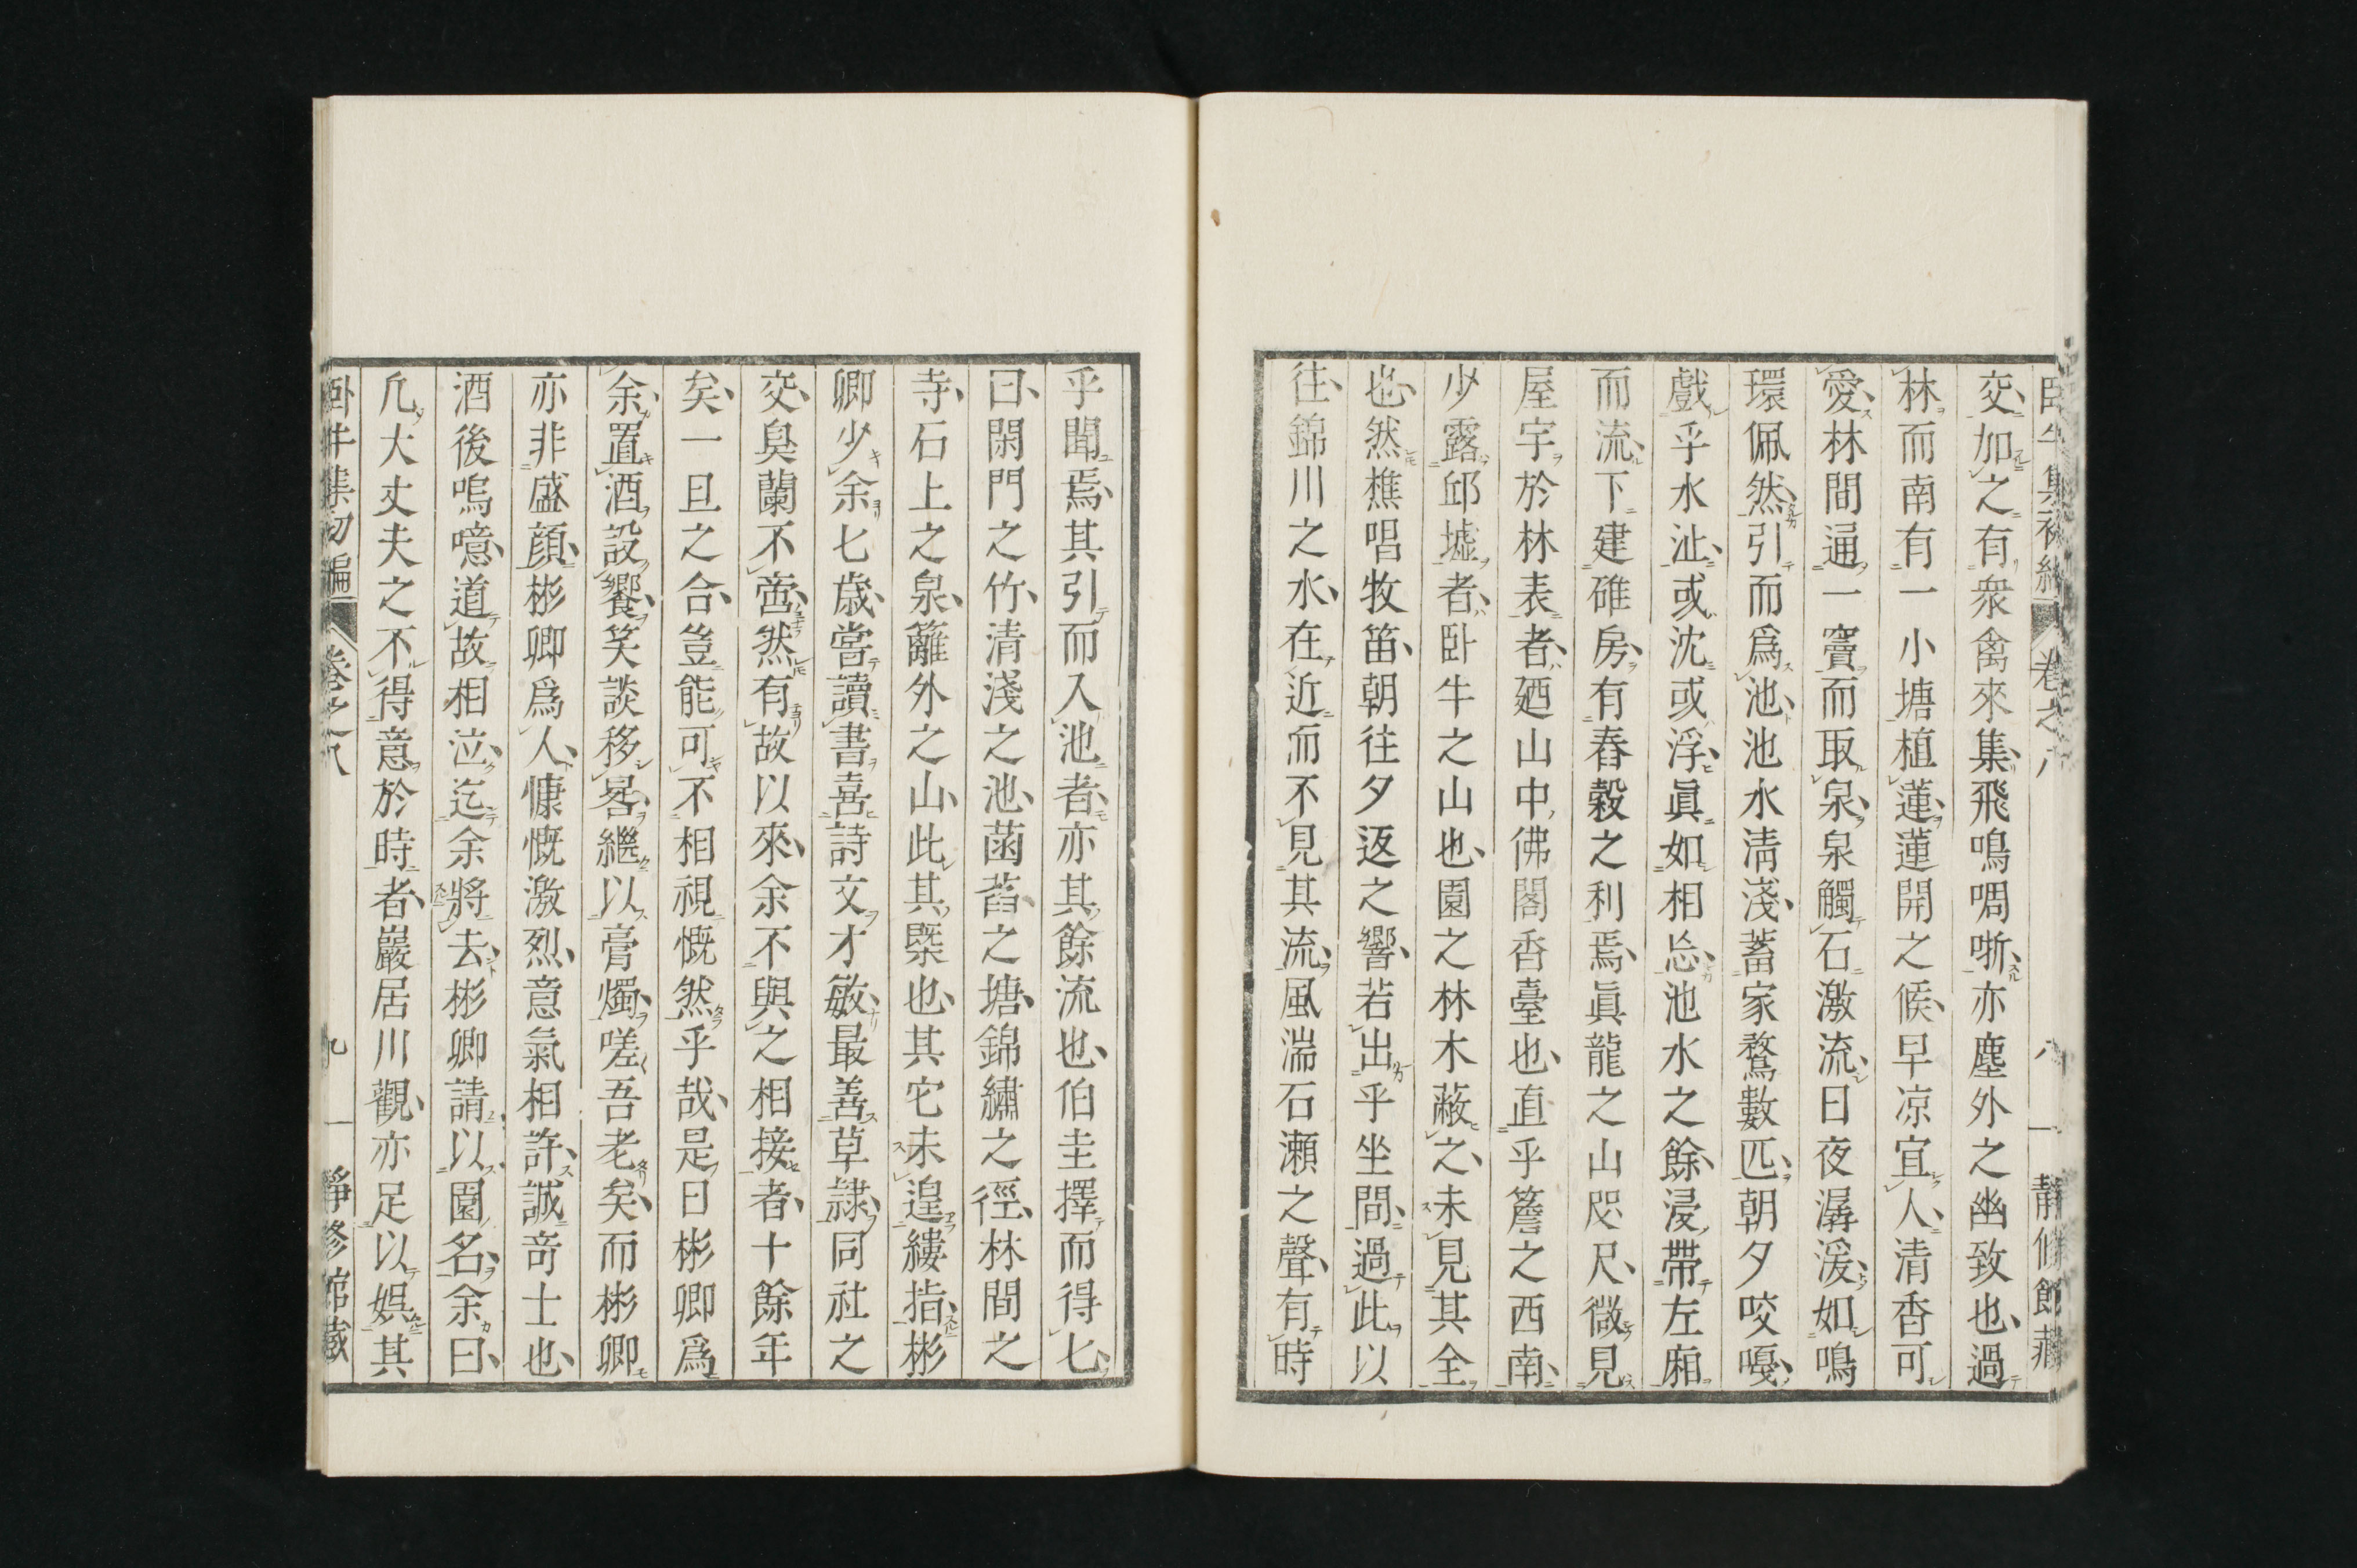 臥牛集初編 卷之八 八 靜修館藏
交加之有衆禽來集飛鳴啁哳亦塵外之幽致也過
林而南有一小塘植蓮蓮開之候早凉宜人清香可
愛林間通一竇而取泉泉觸石激流日夜潺湲如鳴
環佩然引而爲池池水淸淺蓄家鶩數匹朝夕咬嘎
戲乎水沚或沈或浮眞如相忘池水之餘浸帶左廂
而流下建碓房有舂穀之利焉眞龍之山咫尺微見
屋宇於林表者廼山中佛閣香臺也直乎簷之西南
少露邱墟者臥牛之山也園之林木蔽之未見其全
也然樵唱牧笛朝往夕返之響若出乎坐間過此以
往錦川之水在近而不見其流風湍石瀨之聲有時
乎聞焉其引而入池者亦其餘流也伯圭擇而得七
曰閑門之竹清淺之池菡萏之塘錦繡之徑林間之
寺石上之泉籬外之山此其槩也其它未遑縷指彬
卿少余七歲嘗讀書喜詩文才敏最善草隷同社之
交臭蘭不啻然有故以來余不與之相接者十餘年
矣一旦之合豈能可不相視慨然乎哉是日彬卿爲
余置酒設饗笑談移晷繼以膏燭嗟吾老矣而彬卿
亦非盛顏彬卿爲人慷慨激烈意氣相許誠奇士也
酒後嗚噫道故相泣迄余將去彬卿請以園名余曰
凢大丈夫之不得意於時者巖居川觀亦足以娯其
臥牛集初編 卷之八 九 靜修館藏